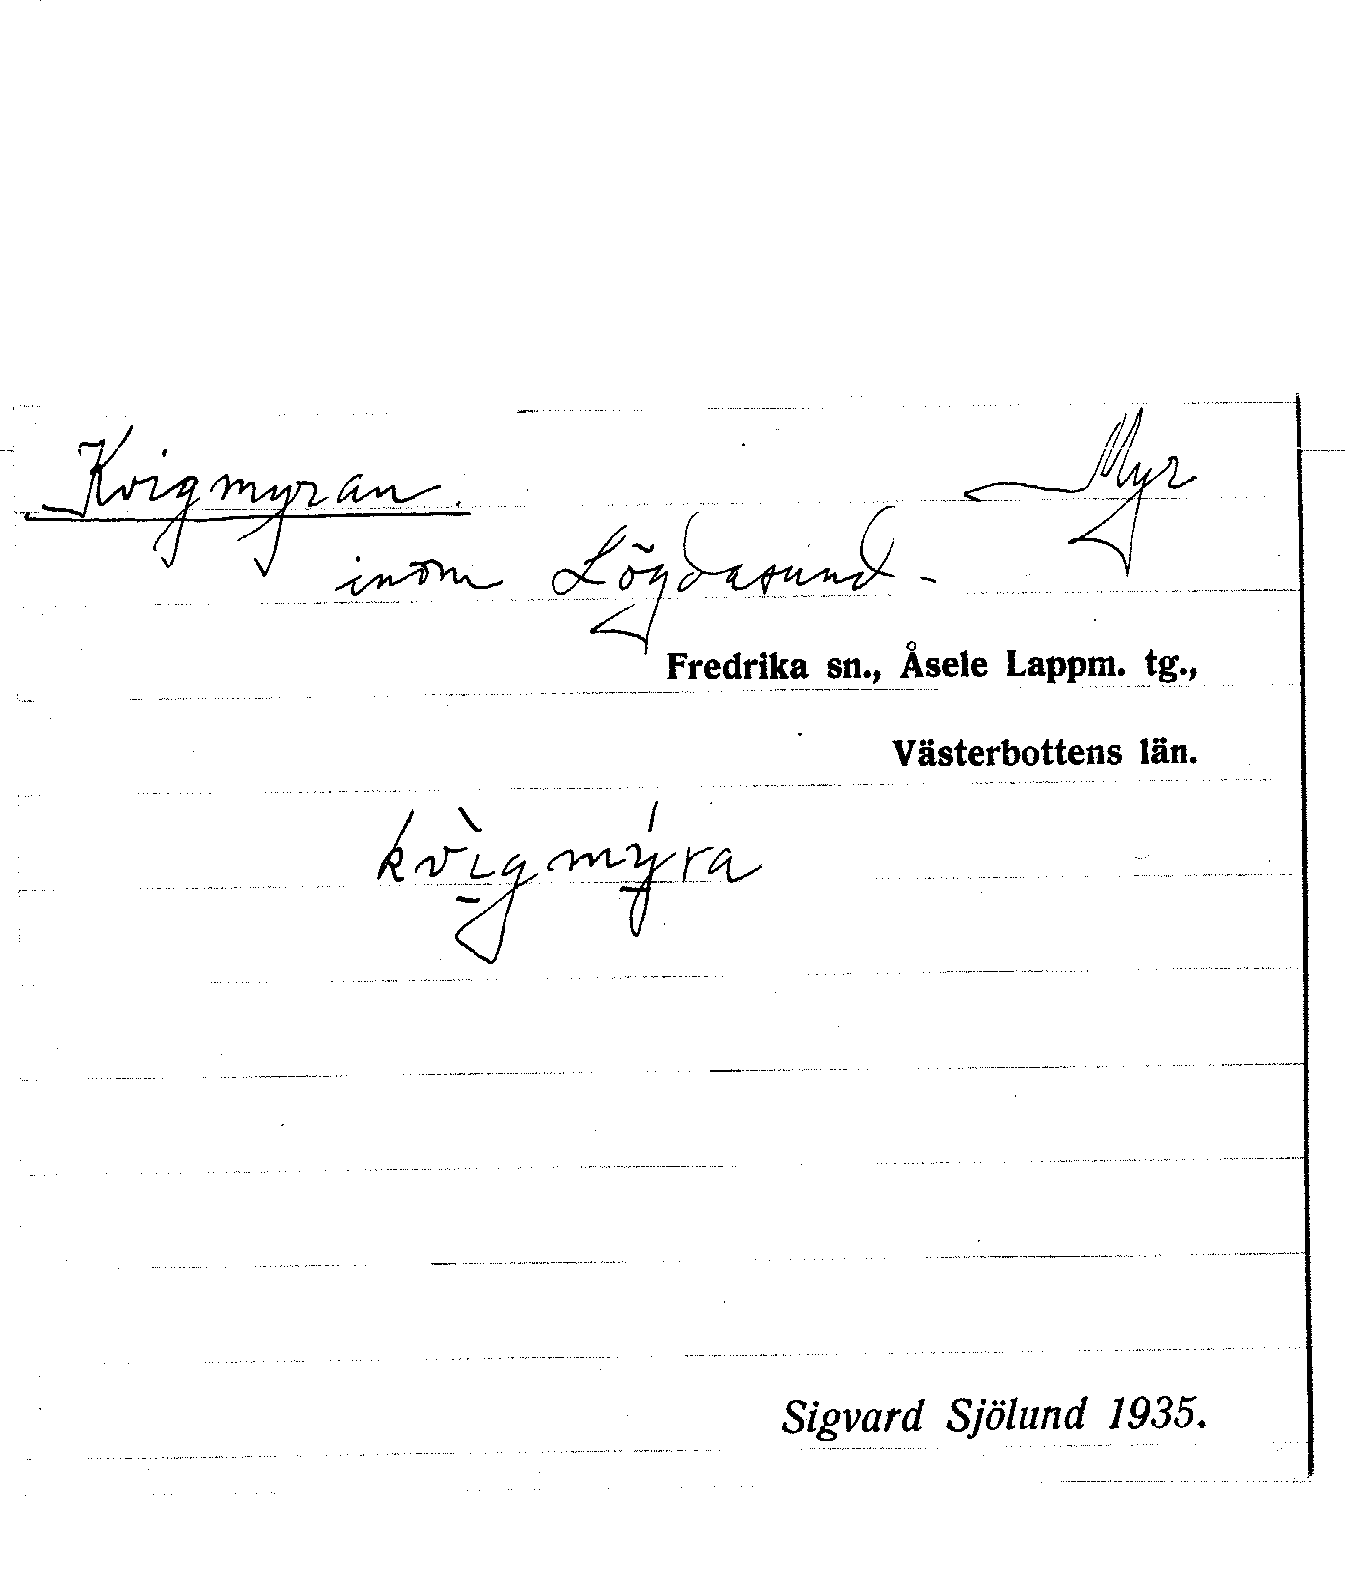 Kvigmyran. Myr
inom Lögdasund -
Fredrika sn., Åsele Lappm. tg.,
Västerbottens län.
kvı̀gmýra
Sigvard Sjölund 1935.